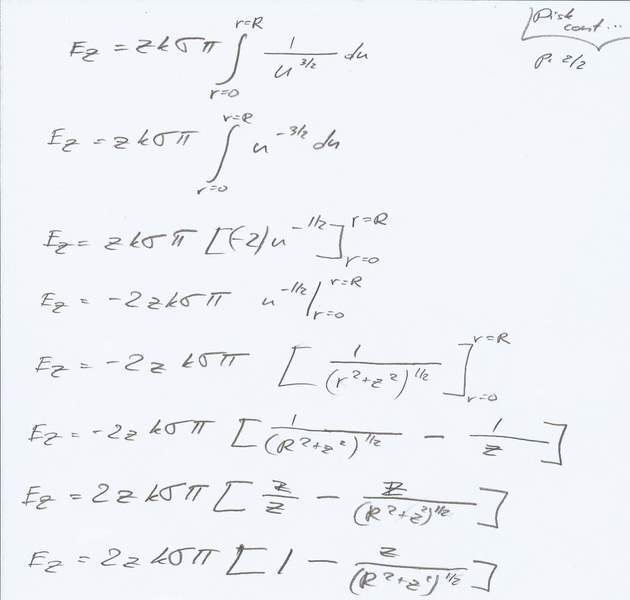 Disk
cont...
P. 2/2
E_z = zkσπ ∫_{r=0}^{r=R} 1/u^{3/2} du
E_z = zkσπ ∫_{r=0}^{r=R} u^{-3/2} du
E_z = zkσπ [(-2)u^{-1/2}]_{r=0}^{r=R}
E_z = -2zkσπ u^{-1/2}|_{r=0}^{r=R}
E_z = -2z kσπ [1/(r²+z²)^{1/2}]_{r=0}^{r=R}
E_z = -2z kσπ [1/(R²+z²)^{1/2} - 1/z]
E_z = 2z kσπ [z/z - z/(R²+z²)^{1/2}]
E_z = 2z kσπ [1 - z/(R²+z²)^{1/2}]